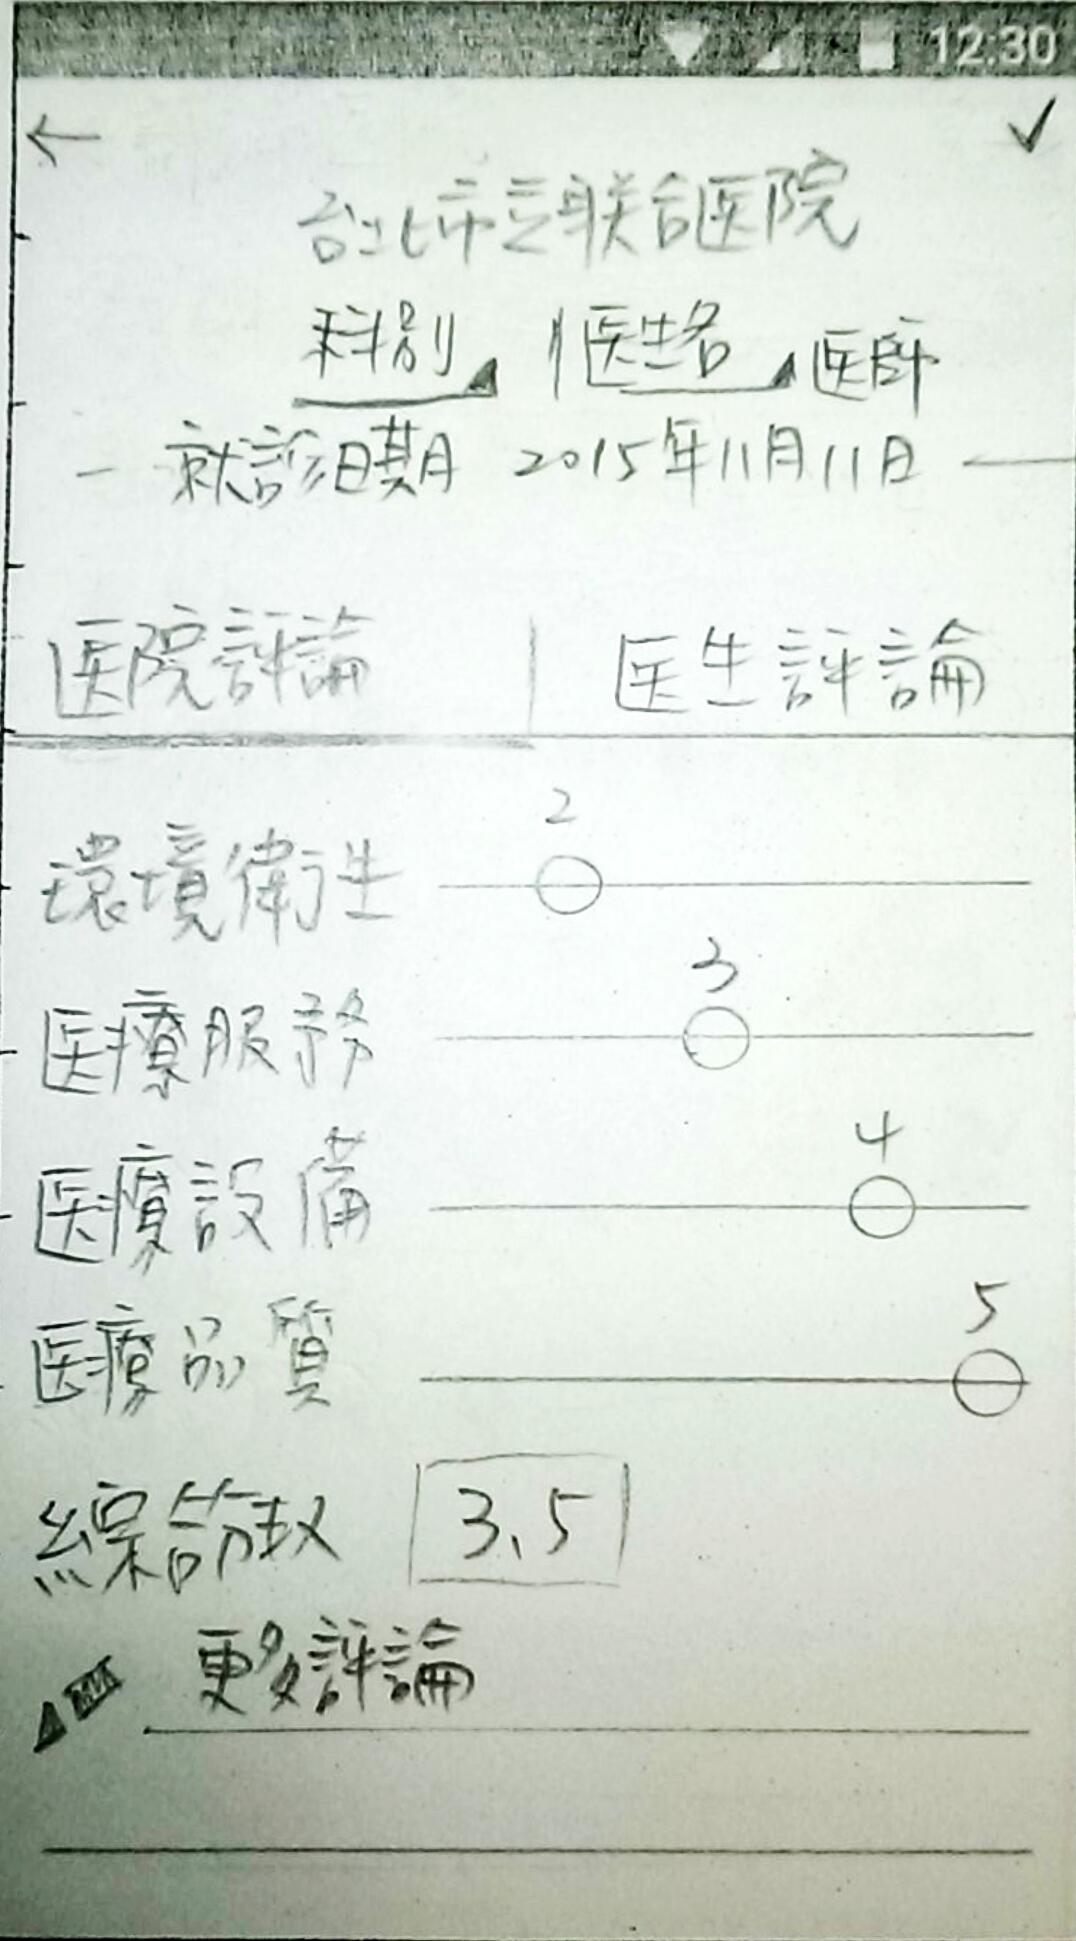 12:30
台北市立联合医院
科別 医生名 医師
就診日期 2015年11月11日
医院評論 医生評論
2
環境衛生
3
医療服務
4
医療設備
5
医療品質
綜合分数 3.5
更多評論